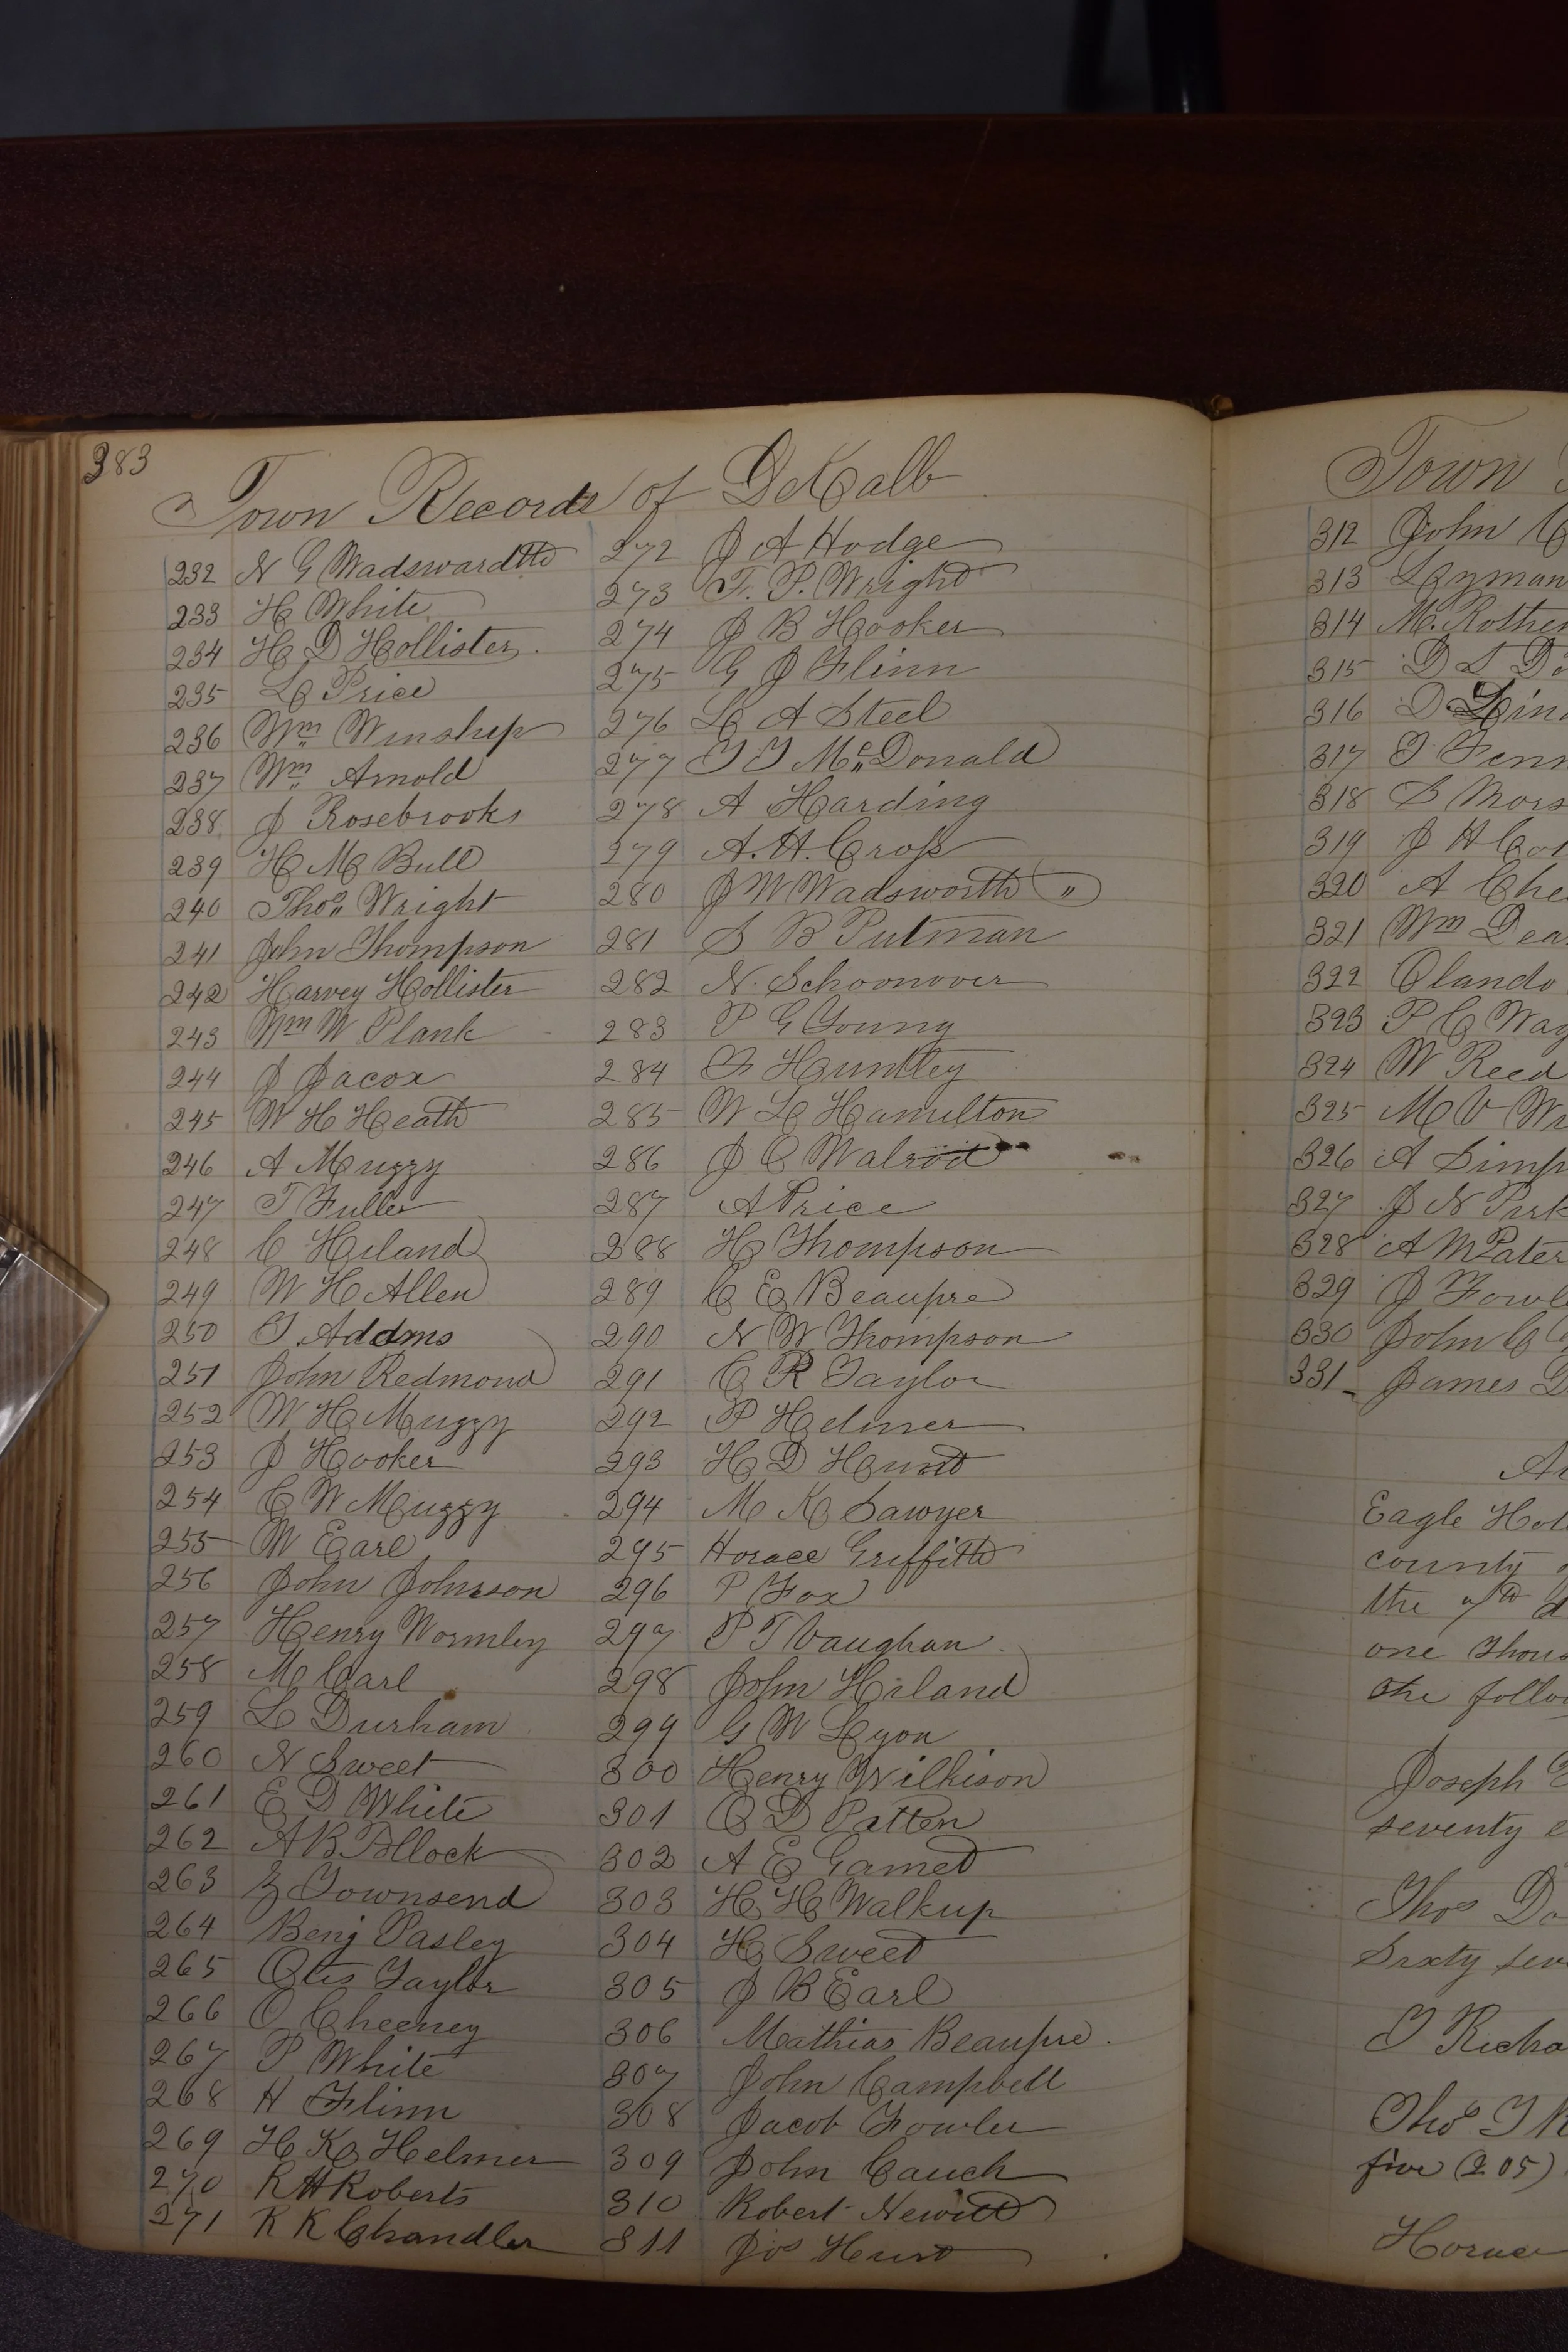 383
Town Records of DeKalb
232 N G Wadswardth
233 H White
234 H D Hollister
235 L Price
236 Wm Winship
237 Wm Arnold
238 J Rosebrooks
239 H M Bull
240 Thos Wright
241 John Thompson
242 Harvey Hollister
243 Wm W Plank
244 J Jacox
245 W H Heath
246 A Muzzy
247 T Fuller
248 C Hiland
249 W H Allen
250 T. Addms
251 John Redmond
252 W H Muzzy
253 J Hooker
254 C W Muzzy
255 W Earl
256 John Johnson
257 Henry Wormley
258 M Carl
259 L Durham
260 N Sweet
261 E D White
262 A B Pollock
263 Z Townsend
264 Benj Pasley
265 Otis Taylor
266 O Cheeney
267 P White
268 H Flinn
269 H K Helmer
270 R H Roberts
271 R K Chandler
272 J A Hodge
273 T. P. Wright
274 J B Hooker
275 G J Flinn
276 L A Steel
277 T J Mc Donald
278 A Harding
279 A. H. Cross
280 J W Wadsworth "
281 S B Putman
282 N. Schoonover
283 P G Young
284 F Huntley
285 W L Hamilton
286 J C Walrod
287 A Price
288 H Thompson
289 C E Beaupre
290 N W Thompson
291 C R Taylor
292 P Helmer
293 H D Hunt
294 M K Sawyer
295 Horace Griffith
296 P Fox
297 P T Vaughan
298 John Hiland
299 G W Lyon
300 Henry Wilkison
301 O D Patten
302 A E Gamet
303 H H Walkup
304 H Sweet
305 J B Earl
306 Mathias Beaupre.
307 John Campbell
308 Jacob Fowler
309 John Cauch
310 Robert Newitt
311 Jos Hunt
Town
312 John
313 Lyman
314 M. Rother
315 D L
316 D
317 T Fenn
318 S Mors
319 J H
320 A Che
321 Wm Dea
322 Olando
323 P C Way
324 W Reed
325 M V
326 A Simp
327 J N Park
328 A M Pater
329 J Fowl
330 John C
331 James
Eagle Hot
county
the 7th d
one thous
the follow
Joseph
seventy e
Thos Do
Sixty sev
T Richa
Thos T
five (205)
Horace